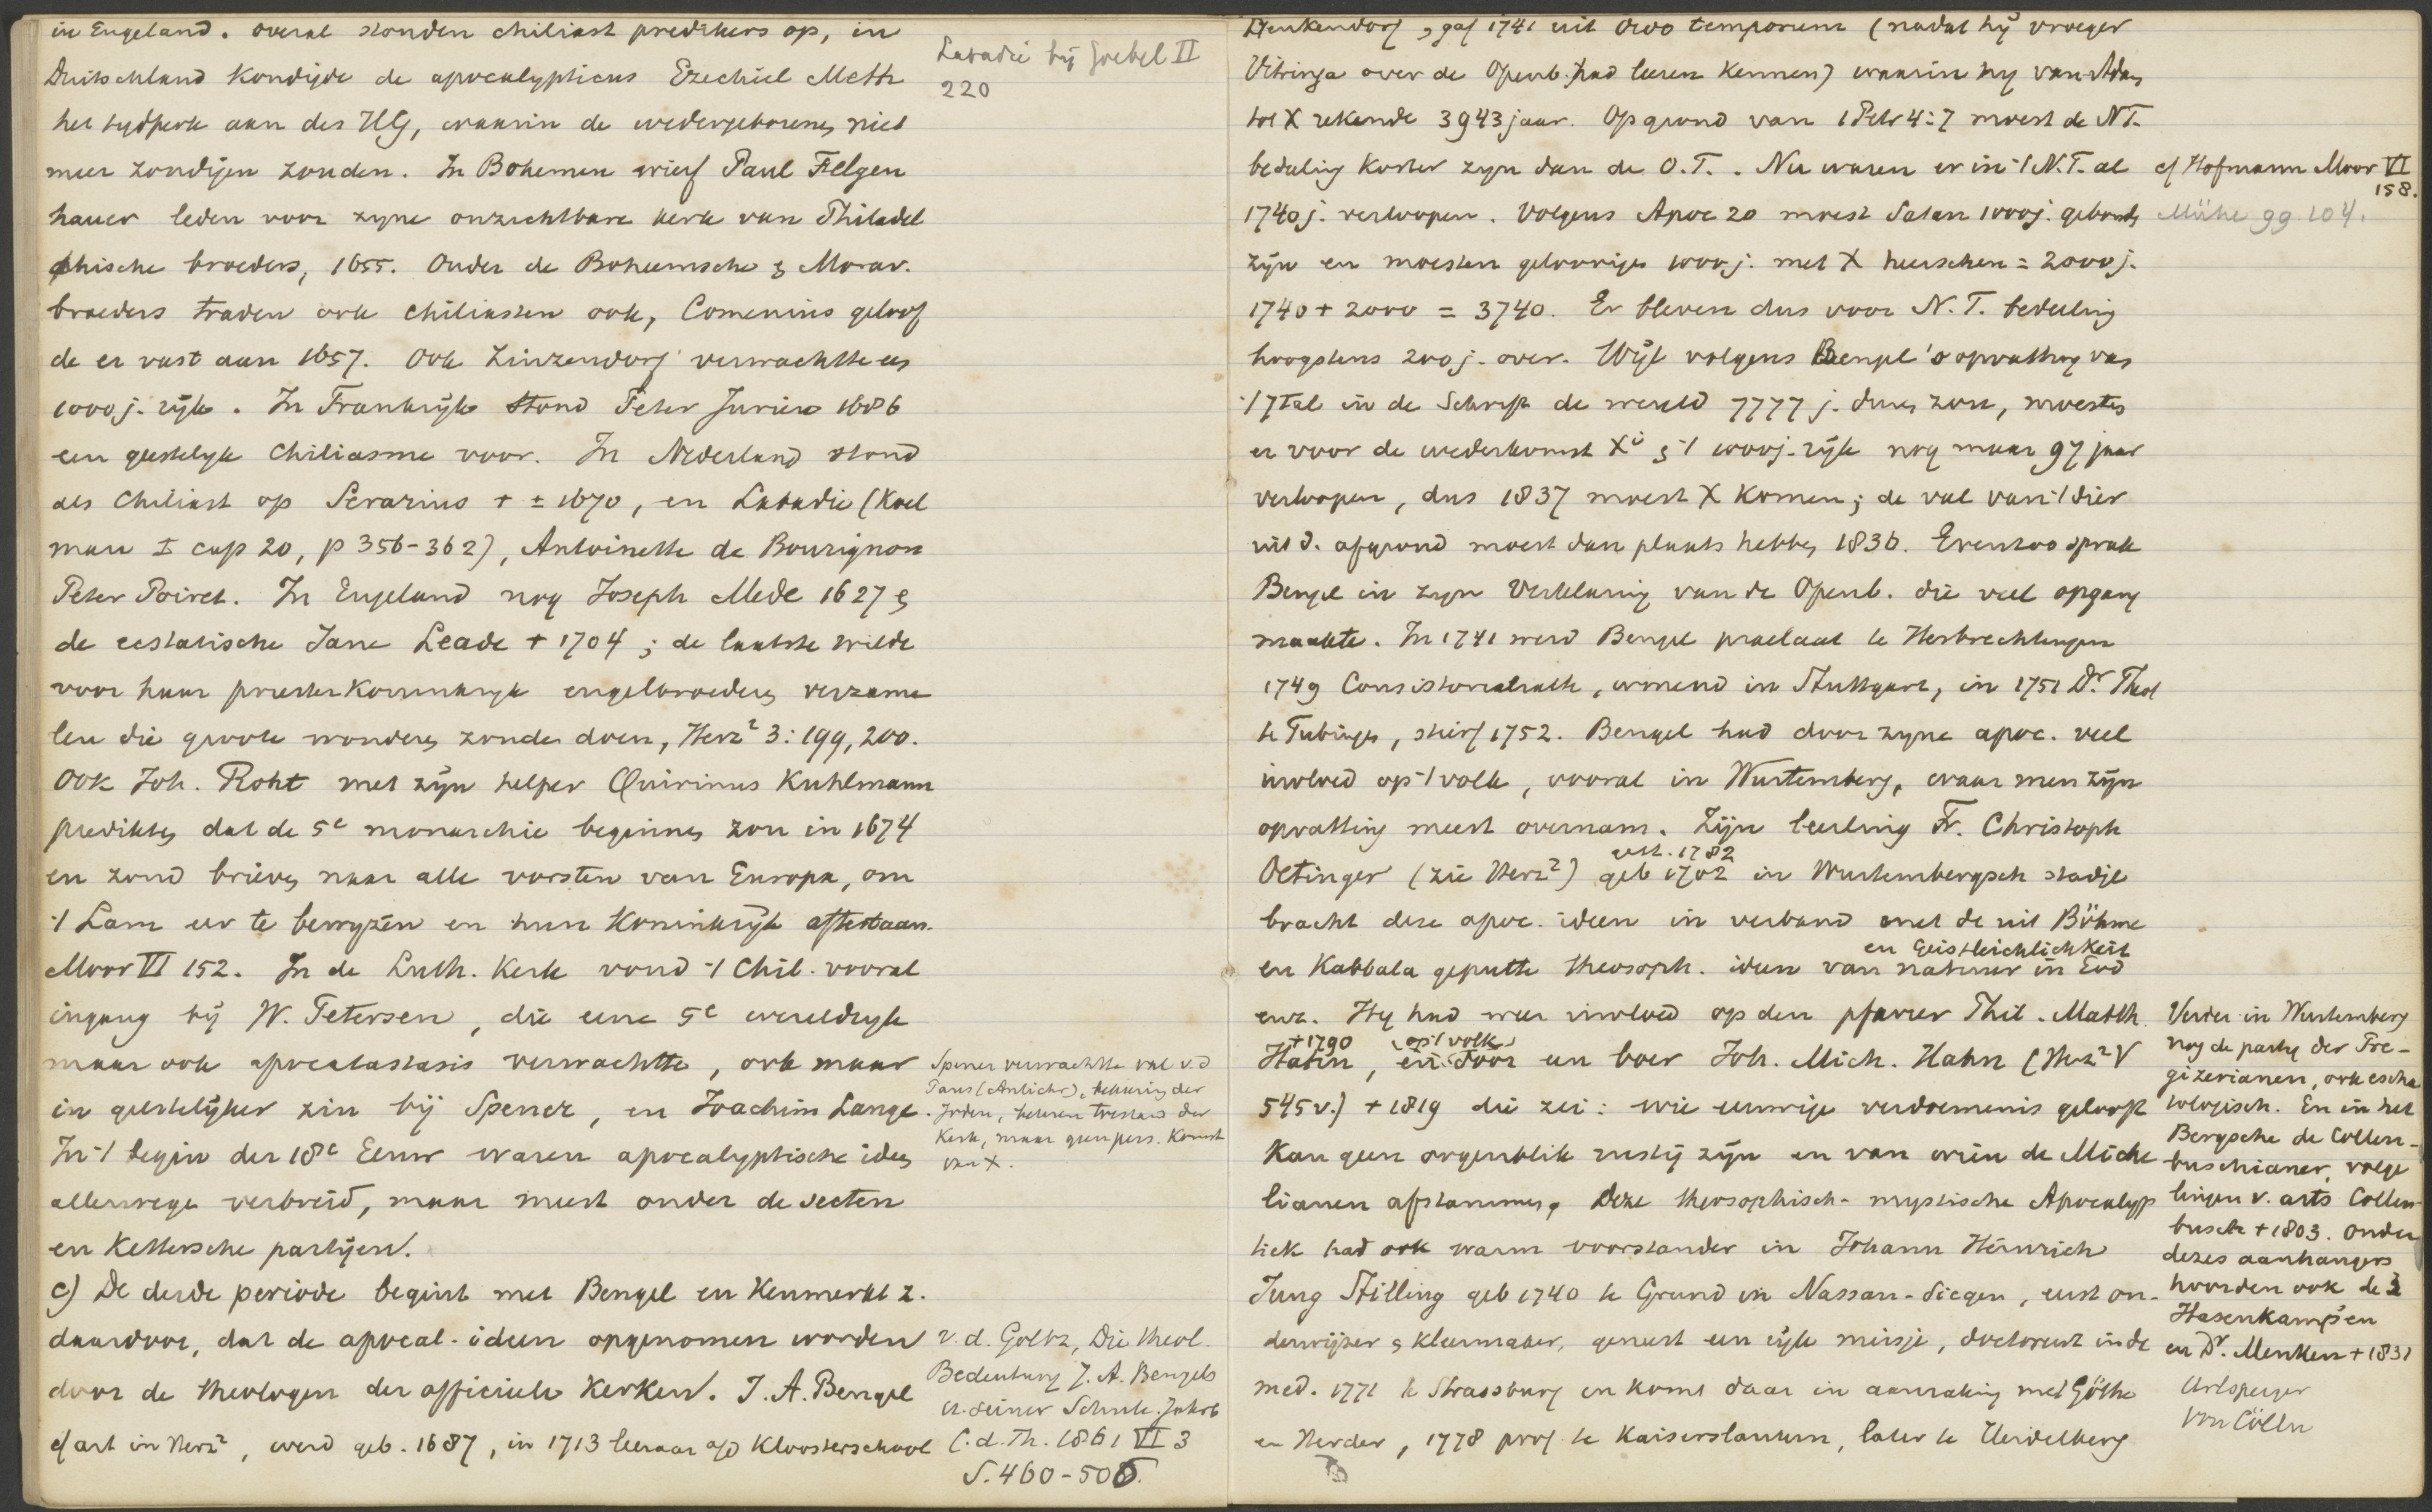 in Engeland. overal stonden chiliast predikers op, in
Duitschland kondigde de apocalypticus Ezechiel Meth
het tydperk aan des HG, waarin de wedergeborenen niet
meer zondigen zouden. In Bohemen wierf Paul Felgen
hauer leden voor zyne onzichtbare kerk van Philadel
phische broeders, 1655. Onder de Boheemsche & Morav.
broeders traden ook chiliasten ook, Comenius geloof
de er vast aan 1657. Ook Zinzendorf verwachtte een
1000 j. rijk. In Frankrijk stond Peter Jurieu 1686
een geestelyk Chiliasme voor. In Nederland stond
als Chiliast op Serarius † ± 1670, en Labadie (Koel
man I cap 20, p 356-362), Antoinette de Bourignon
Peter Poiret. In Engeland nog Joseph Mede 1627 &
de ecstatische Jane Leade † 1704; de laatste wilde
voor haar priester Koninkryk engelbroeders verzame
len die groote wonderen zouden doen, Herz² 3: 199, 200.
Ook Joh. Roht met zijn helper Quirinus Kuhlmann
predikten dat de 5e monarchie beginnen zou in 1674
en zond brieven naar alle vorsten van Europa, om
't Lam eer te bewyzen en hun Koninkrijk aftestaan.
Moor VI 152. In de Luth. Kerk vond 't Chil. vooral
ingang bij W. Petersen, die eene 5e wereldryk
maar ook apocatastasis verwachtte, ook maar
in geestelijker zin bij Spener, en Joachim Lange.
In 't begin der 18e Eeuw waren apocalyptische ideen
allerwege verbreid, maar meest onder de secten
en Kettersche partijen.
c) De derde periode begint met Bengel en Kenmerkt z.
daardoor, dat de apocal. ideen opgenomen worden
door de theologen der officieele Kerken. J. A. Bengel
cf art in Herz², werd geb. 1687, in 1713 leeraar a/d Kloosterschool
Labadie bij Goebel II
220
Spener verwachtte val v.d
Paus (Antichr), bekeering der
Joden, beteren toestand der
Kerk, maar geen pers. Komst
van X.
v. d. Goltz, Die theol.
Bedeutung J. A. Bengels
u. seiner Schule. Jahrb
f. d. Th. 1861 VI 3
S. 460-506.
Denkendorf, gaf 1741 uit Ordo temporum (nadat hij vroeger
Vitringa over de Openb. had leeren kennen) waarin hy van Adam
tot X rekende 3943 jaar. Op grond van 1 Petr 4:7 moest de NT.
bedeeling korter zyn dan de O.T.. Nu waren er in 't N.T. al
1740 j. verloopen. Volgens Apoc 20 moest Satan 1000 j. gebonden
zijn en moesten geloovigen 1000 j. met X heerschen = 2000 j.
1740 + 2000 = 3740. Er bleven dus voor N. T. bedeeling
hoogstens 200 j. over. Wijl volgens Bengel's opvatting van
't 7tal in de Schrift de wereld 7777 j. duren zou, moesten
er voor de wederkomst Xi & 't 1000j. rijk nog maar 97 jaar
verloopen, dus 1837 moest X komen; de val van 't dier
uit d. afgrond moest dan plaats hebben 1836. Evenzoo sprak
Bengel in zyn Verklaring van de Openb. die veel opgang
maakte. In 1741 werd Bengel praelaat te Herbrechtingen
1749 Consistorialrath, wonend in Stuttgart, in 1751 Dr. Theol
te Tubingen, stierf 1752. Bengel had door zyne apoc. veel
invloed op 't volk, vooral in Wurtemberg, waar men zijn
opvatting meest overnam. Zijn leerling Fr. Christoph
Oetinger (zie Herz²) geb 1702 in Wurtembergsch stadje
gest. 1782
bracht deze apoc. ideen in verband met de uit Böhme
en Kabbala geputte theosoph. ideen van natuur in God
en Geistleichlichkeit
enz. Hy had weer invloed op den pfarrer Phil. Matth.
Hahn, en door een boer Joh. Mich. Hahn (Herz² V
† 1790 op 't volk
545 v.) † 1819 die zei: wie eeuwige verdoemenis gelooft
kan geen oogenblik rustig zijn en van wien de Miche
lianen afstammen. Deze theosophisch-mystische Apocalyp
tiek had ook warm voorstander in Johann Heinrich
Jung Stilling geb 1740 te Grund in Nassau-Siegen, eerst on-
derwijzer & kleermaker, geneest een rijk meisje, doctoreert in de
med. 1771 te Strassburg en komt daar in aanraking met Göthe
en Herder, 1778 prof te Kaiserslautern, later te Heidelberg
cf Hofmann Moor VI
158.
Mühe gg 104.
Verder in Wurtemberg
nog de party der Pre-
gizerianen, ook escha
tologisch. En in het
Bergsche de Collen-
buschianer, volge
lingen v. arts Collen-
busch † 1803. Onder
dezes aanhangers
hoorden ook de 3
Hasenkamp's en
en Dr. Menken † 1831
Urlsperger
von Cölln